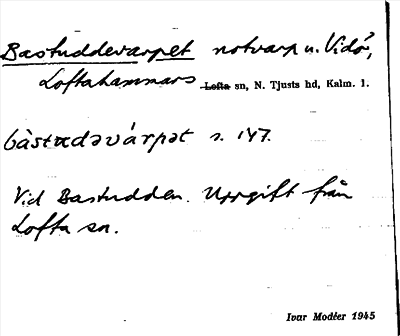 Bastuddevarpet notvarp u. Vidö,
Loftahammars Lofta sn, N. Tjusts hd, Kalm. l.
bàstɷdəvárpət s. 147.
Vid Bastudden. Uppgift från
Lofta sn.
Ivar Modéer 1945